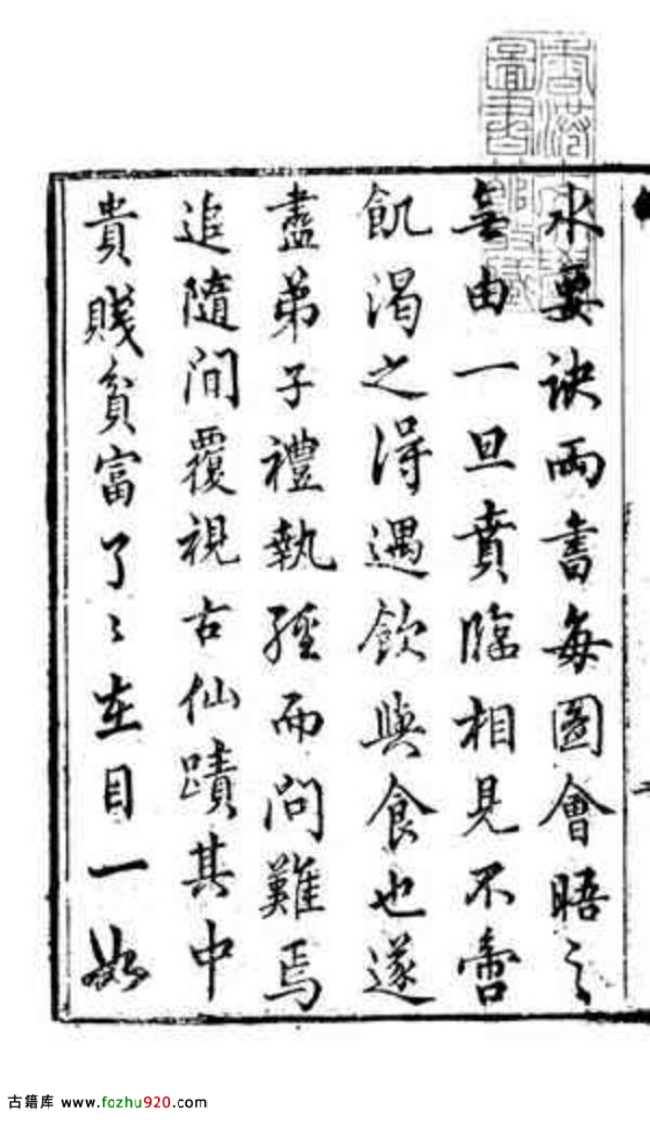 水要訣兩書每圖會晤之
無由一旦賁臨相見不啻
飢渴之得遇飲與食也遂
盡弟子禮執經而問難焉
追隨間覆視古仙蹟其中
貴賤貧富了〻在目一如
古籍库 www.fozhu920.com